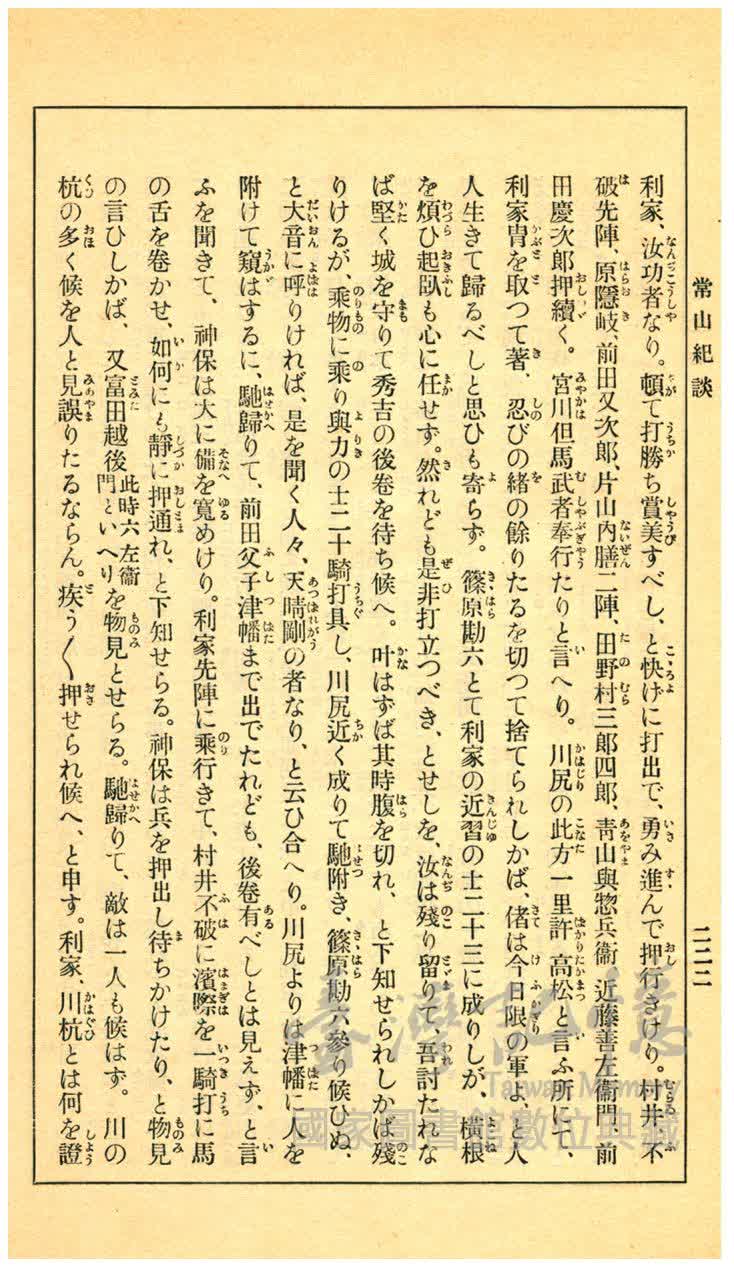 常山紀談
二二二
利家、汝功者なり。頓て打勝ち賞美すべし、と快げに打出で、勇み進んで押行きけり。村井、不
破先陣、原隱岐、前田又次郎、片山內膳二陣、田野村三郎四郎、靑山與惣兵衞、近藤善左衞門、前
田慶次郎押續く。宮川但馬武者奉行たりと言へり。川尻の此方一里許高松と言ふ所にて、
利家冑を取つて著、忍びの緖の餘りたるを切つて捨てられしかば、偖は今日限の軍よ、と人
人生きて歸るべしと思ひも寄らず。篠原勘六とて利家の近習の士二十三に成りしが、橫根
を煩ひ起臥も心に任せず。然れども是非打立つべき、とせしを、汝は殘り留りて、吾討たれな
ば堅く城を守りて秀吉の後卷を待ち候へ。叶はずば其時腹を切れ、と下知せられしかば殘
りけるが、乘物に乘り與力の士二十騎打具し、川尻近く成りて馳附き、篠原勘六參り候ひぬ、
と大音に呼りければ、是を聞く人々、天晴剛の者なり、と云ひ合へり。川尻よりは津幡に人を
附けて窺はするに、馳歸りて、前田父子津幡まで出でたれども、後卷有べしとは見えず、と言
ふを聞きて、神保は大に備を寬めけり。利家先陣に乘行きて、村井不破に濱際を一騎打に馬
の舌を卷かせ、如何にも靜に押通れ、と下知せらる。神保は兵を押出し待ちかけたり、と物見
の言ひしかば、又富田越後此時六左衞門といへりを物見とせらる。馳歸りて、敵は一人も候はず。川の
杭の多く候を人と見誤りたるならん。疾う〱押せられ候へ、と申す。利家、川杭とは何を證
臺灣記憶
Taiwan Memory
國家圖書館數位典藏